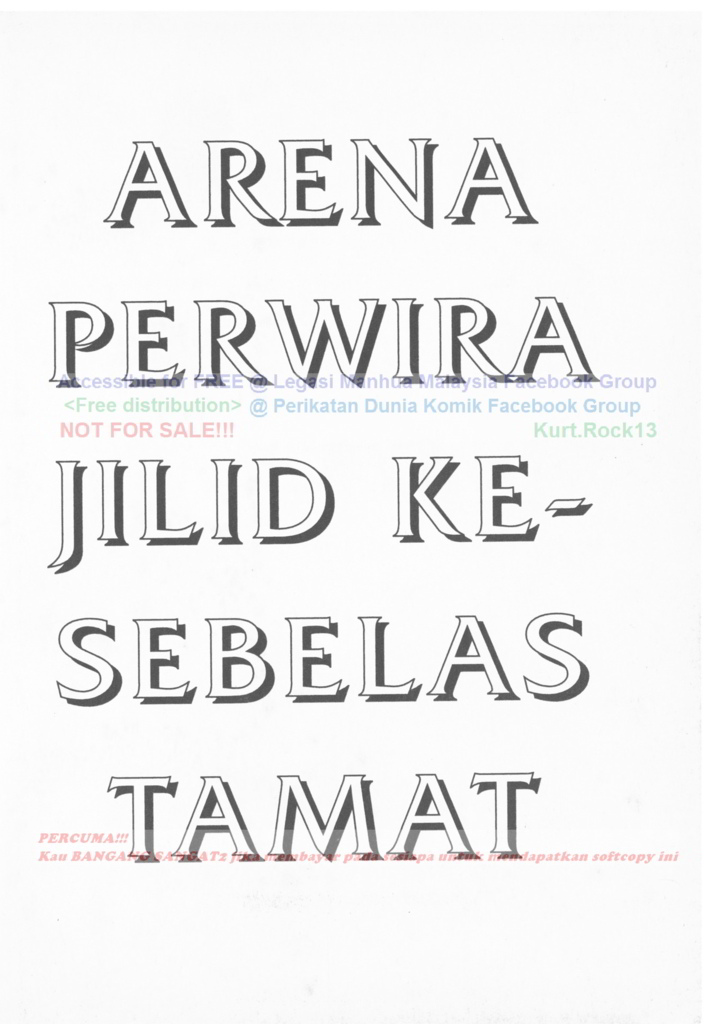 ARENA
PERWIRA
Accessible for FREE @ Legasi Manhua Malaysia Facebook Group
<Free distribution> @ Perikatan Dunia Komik Facebook Group
NOT FOR SALE!!! Kurt.Rock13
JILID KE-
SEBELAS
TAMAT
PERCUMA!!!
Kau BANGANG SANGAT2 jika membayar pada sesiapa untuk mendapatkan softcopy ini